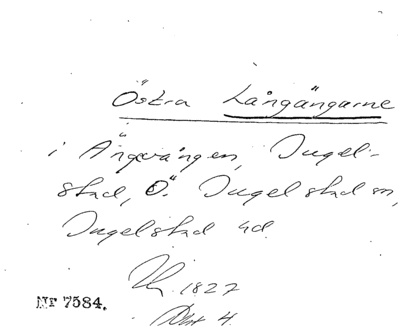 Östra Långängarne
i Ängavången, Ingel-
stad, Ö. Ingelstad sn,
Ingelstad hd.
1827
Nr 7584.
Akt 4.